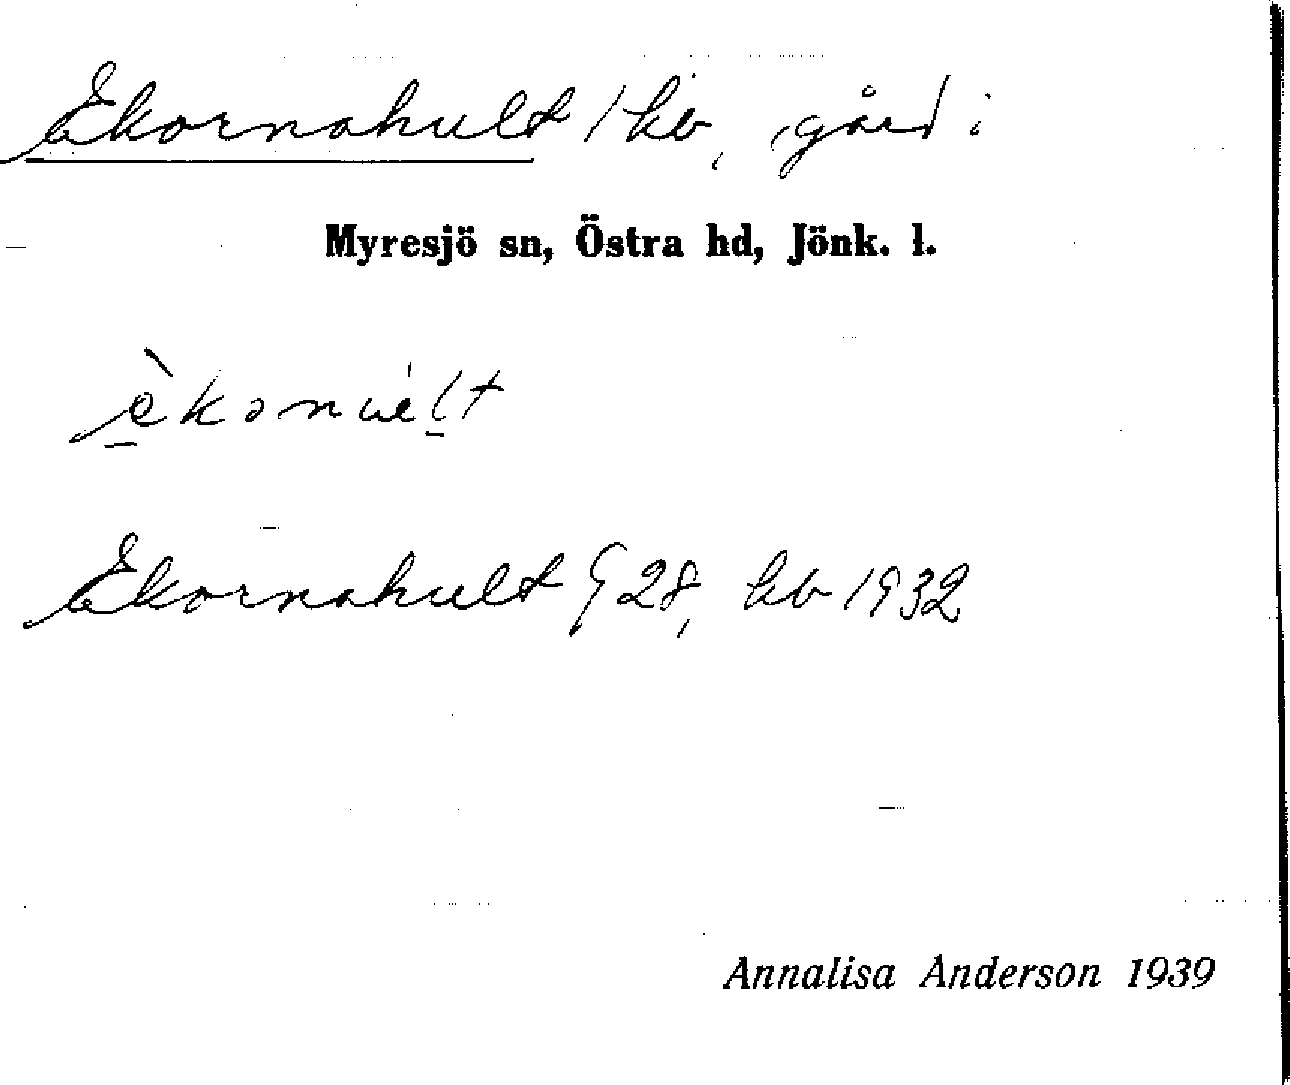 Ekornahult 1 hb, gård i
Myresjö sn, Östra hd, Jönk. l.
Ekornahult § 28, hb 1932
Annalisa Anderson 1939